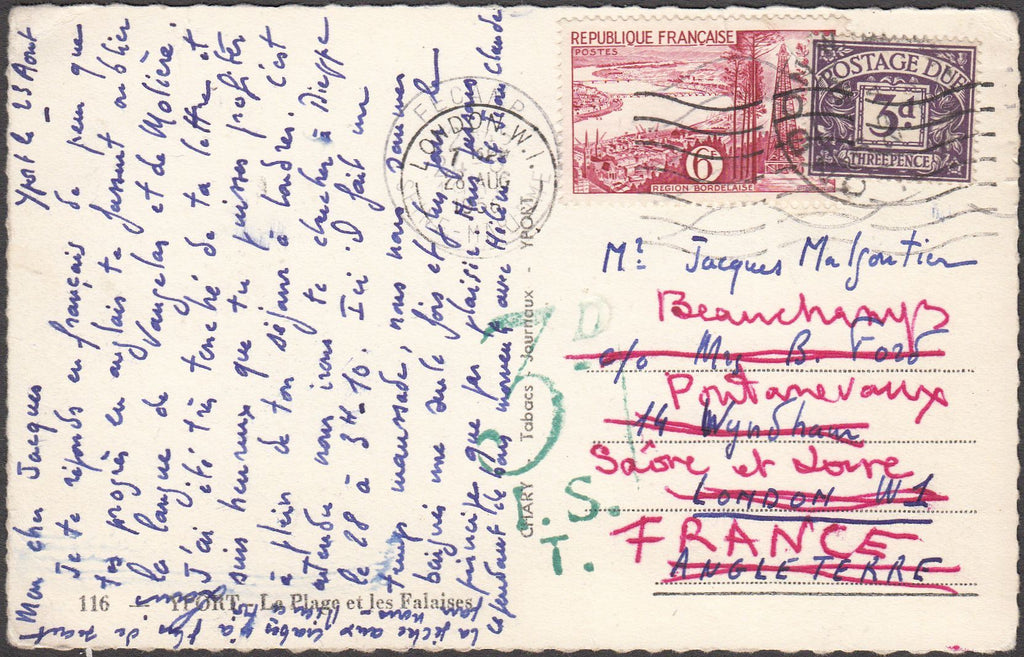 Yport le 23 Aout
Mon cher Jacques
Je te réponds en français de peur que
tes progrès en anglais te fassent oublier
la langue de Vaugelas et de Molière
J'ai été très touché de ta lettre et
suis heureux que tu puisses profiter
à plein de ton séjour à Londres. C'est
entendu nous irons te chercher à Dieppe
le 28 à 3H-10. Ici il fait un
temps maussade, nous nous sommes
baignés une seule fois et
principe que par plaisir
cependant
La pêche aux crabes n'a plus de
116 — YPORT - La Plage et les Falaises
CHARY - Tabacs - Journaux - YPORT
FECAMP
LONDON. W.1.
28 AUG
REPUBLIQUE FRANÇAISE
POSTES
6F
REGION BORDELAISE
POSTAGE DUE
3d
THREEPENCE
3D
I.S.
T.
Mr Jacques Malgoutier
Beauchamps
c/o Mrs B. Ford
Pontanevaux
14 Wyndham
Saône et Loire
LONDON W1
FRANCE
ANGLETERRE